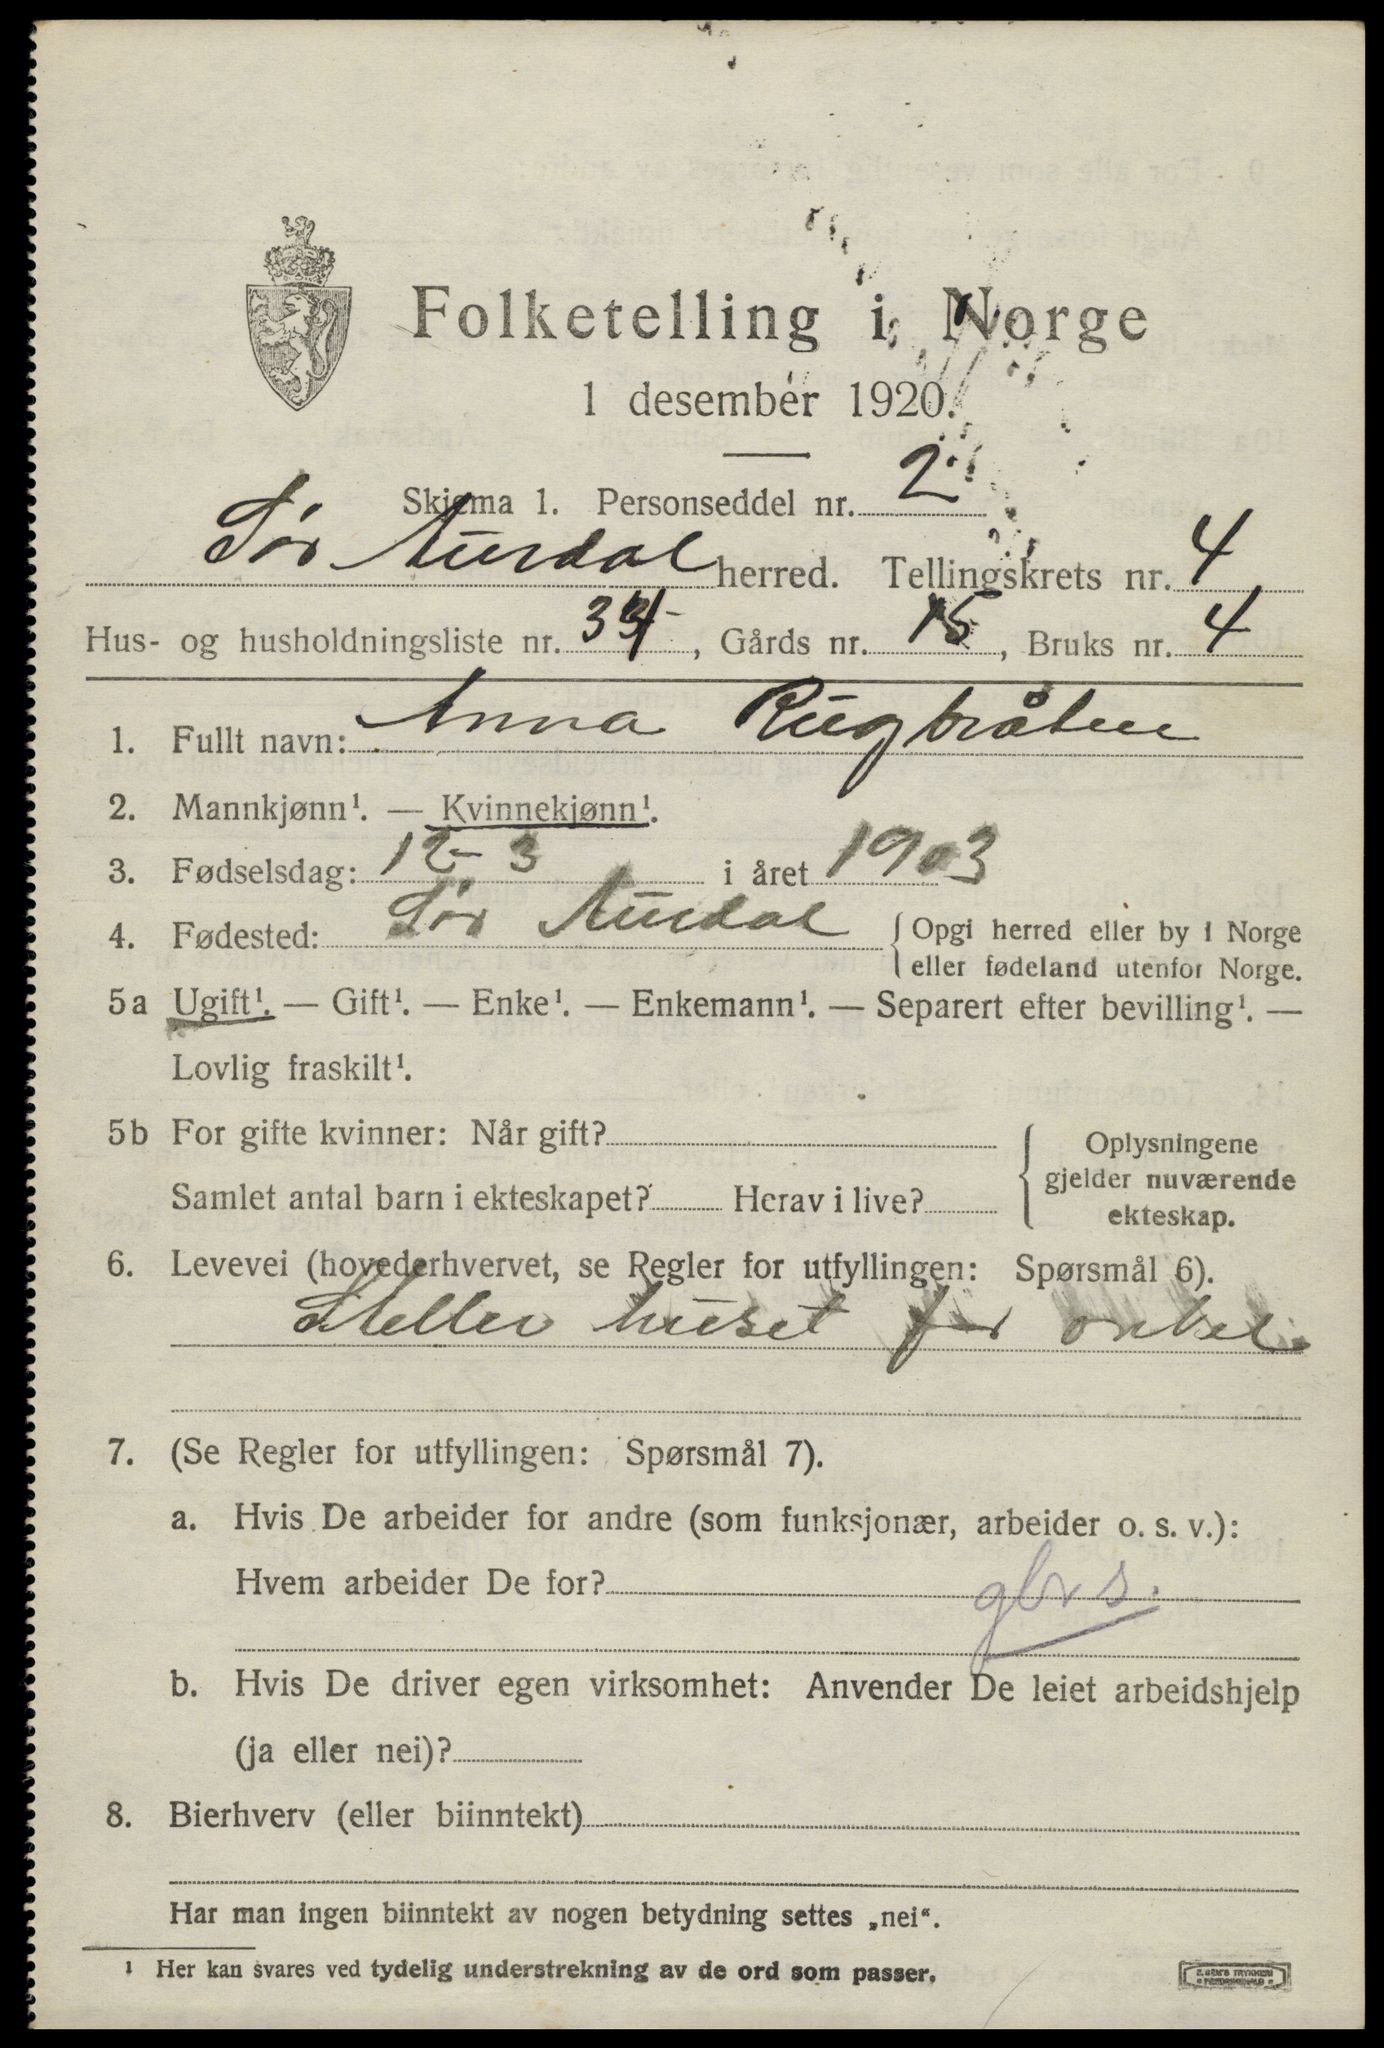 Folketelling i Norge
1 desember 1920.
Skjema 1. Personseddel nr. 2
Sør Aurdal herred. Tellingskrets nr. 4
Hus- og husholdningsliste nr. 34, Gårds nr. 15, Bruks nr. 4
1. Fullt navn: Anna Rugbråten
2. Mannkjønn¹. — Kvinnekjønn¹.
3. Fødselsdag: 12-3 i året 1903
4. Fødested: Sør Aurdal { Opgi herred eller by i Norge
eller fødeland utenfor Norge.
5a Ugift¹. — Gift¹. — Enke¹. — Enkemann¹. — Separert efter bevilling¹. —
Lovlig fraskilt¹.
5b For gifte kvinner: Når gift? { Oplysningene
gjelder nuværende
ekteskap.
Samlet antal barn i ekteskapet? Herav i live?
6. Levevei (hovederhvervet, se Regler for utfyllingen: Spørsmål 6).
Steller huset for onkel
7. (Se Regler for utfyllingen: Spørsmål 7).
a. Hvis De arbeider for andre (som funksjonær, arbeider o. s. v.):
Hvem arbeider De for?
b. Hvis De driver egen virksomhet: Anvender De leiet arbeidshjelp
(ja eller nei)?
8. Bierhverv (eller biinntekt)
Har man ingen biinntekt av nogen betydning settes „nei“.
¹ Her kan svares ved tydelig understrekning av de ord som passer.